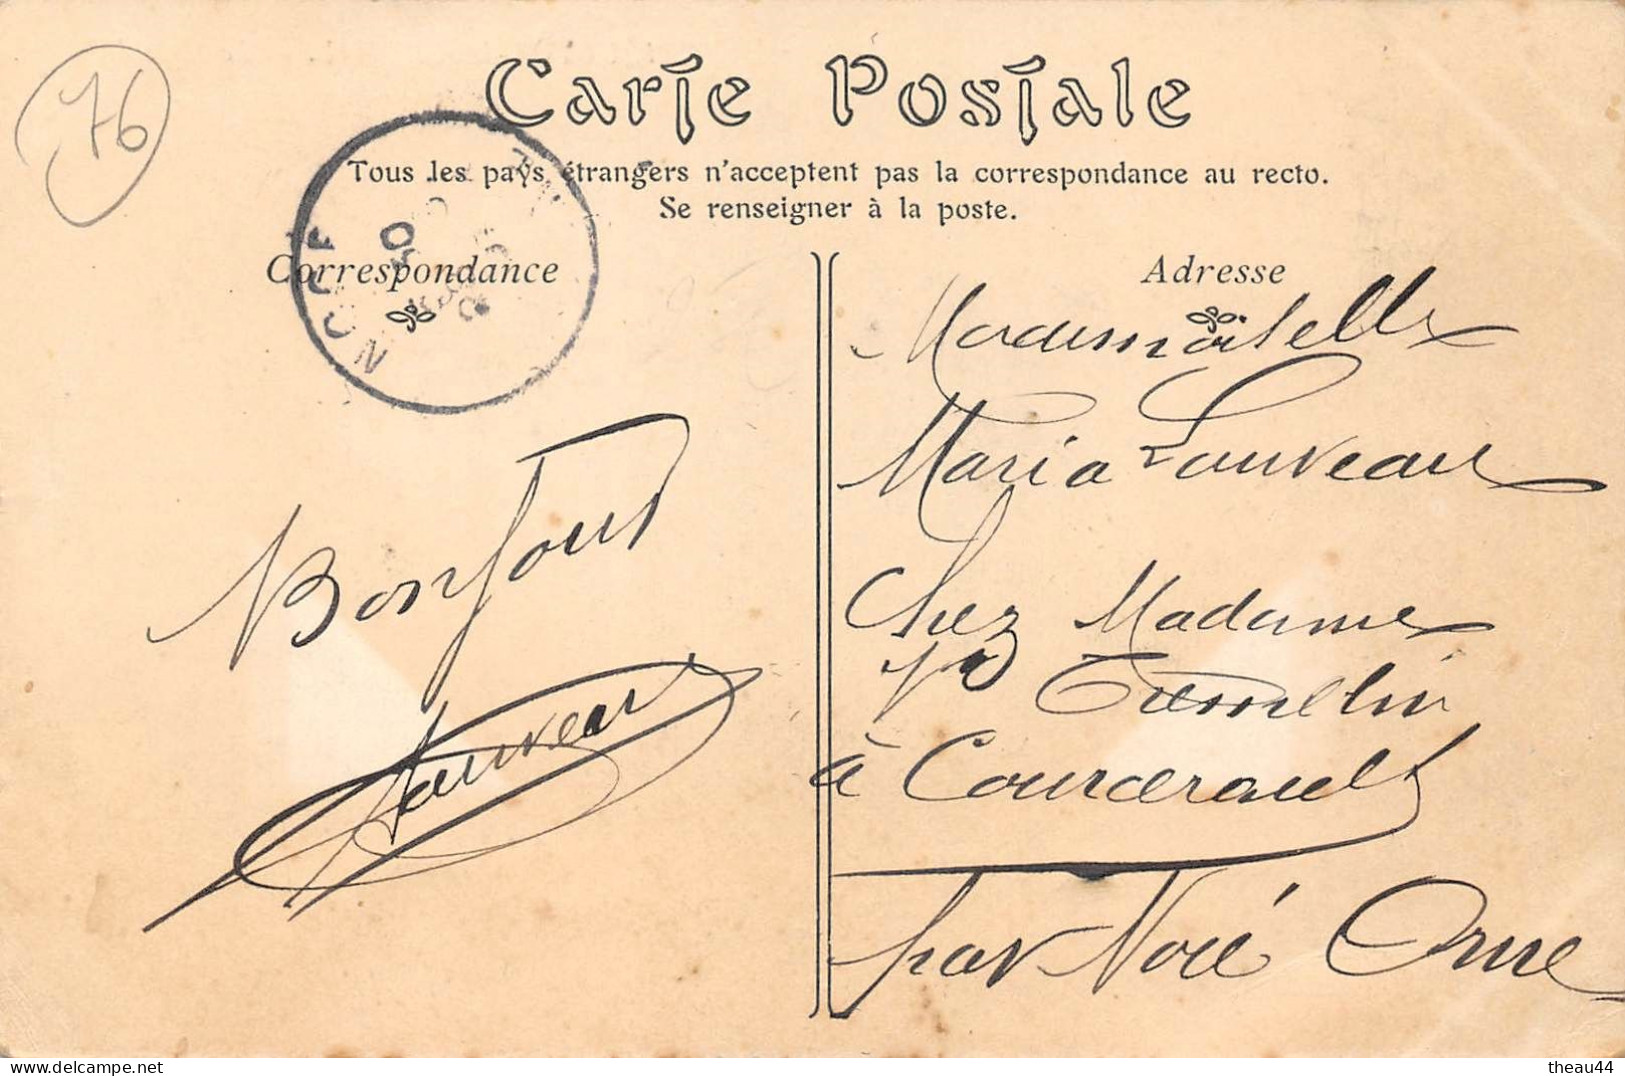 76
Carte Postale
Tous les pays étrangers n'acceptent pas la correspondance au recto.
Se renseigner à la poste.
Correspondance
Adresse
NOCE
Bonjour
Lauveau
Mademoiselle
Maria Lauveau
Chez Madame
Vve
à Courcerault
par Nocé Orne
theau44